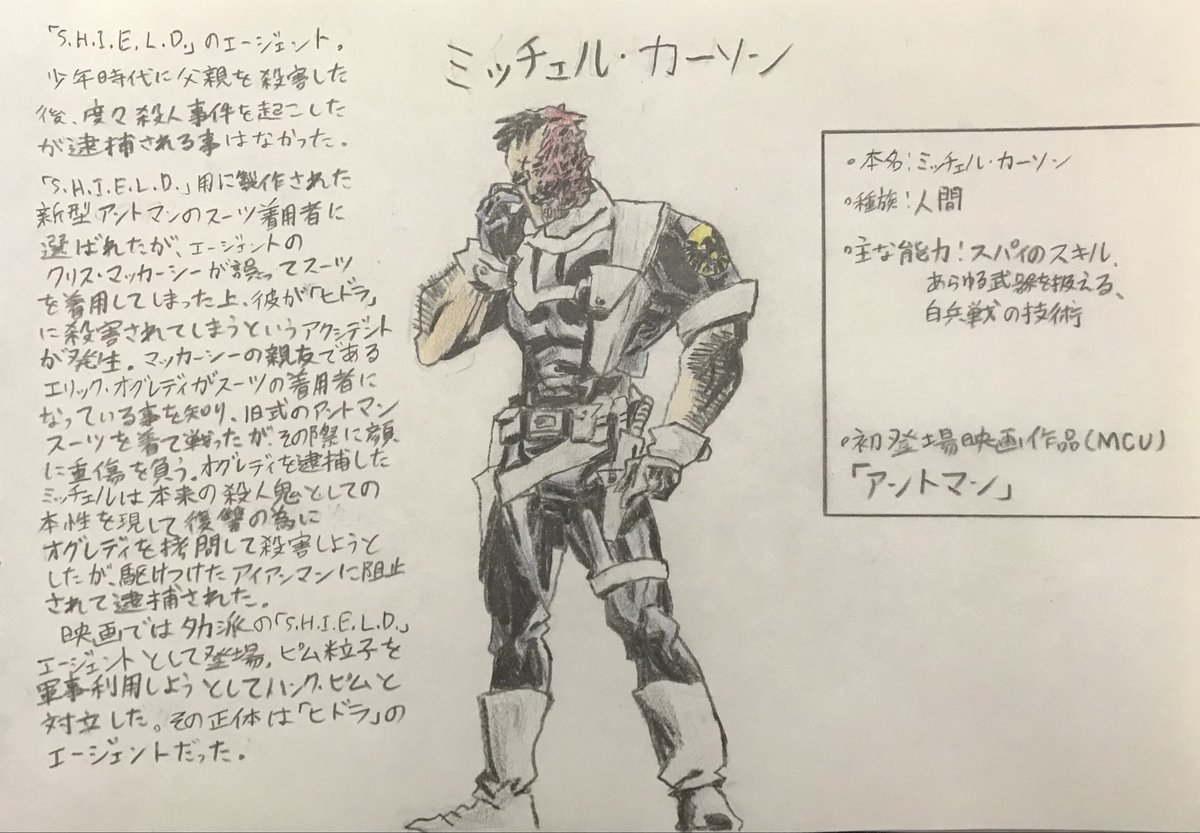 ミッチェル・カーソン
「S.H.I.E.L.D.」のエージェント。
少年時代に父親を殺害した
後、度々殺人事件を起こした
が逮捕される事はなかった。
「S.H.I.E.L.D.」用に製作された
新型アントマンのスーツ着用者に
選ばれたが、エージェントの
クリス・マッカーシーが誤ってスーツ
を着用してしまった上、彼が「ヒドラ」
に殺害されてしまうというアクシデント
が発生。マッカーシーの親友である
エリック・オグレディがスーツの着用者に
なっている事を知り、旧式のアントマン
スーツを着て戦ったが、その際に顔
に重傷を負う。オグレディを逮捕した
ミッチェルは本来の殺人鬼としての
本性を現して復讐の為に
オグレディを拷問して殺害しようと
したが、駆けつけたアイアンマンに阻止
されて逮捕された。
映画ではタカ派の「S.H.I.E.L.D.」
エージェントとして登場。ピム粒子を
軍事利用しようとしてハンク・ピムと
対立した。その正体は「ヒドラ」の
エージェントだった。
•本名:ミッチェル・カーソン
•種族:人間
•主な能力:スパイのスキル、
あらゆる武器を扱える、
白兵戦の技術
•初登場映画作品(MCU)
「アントマン」